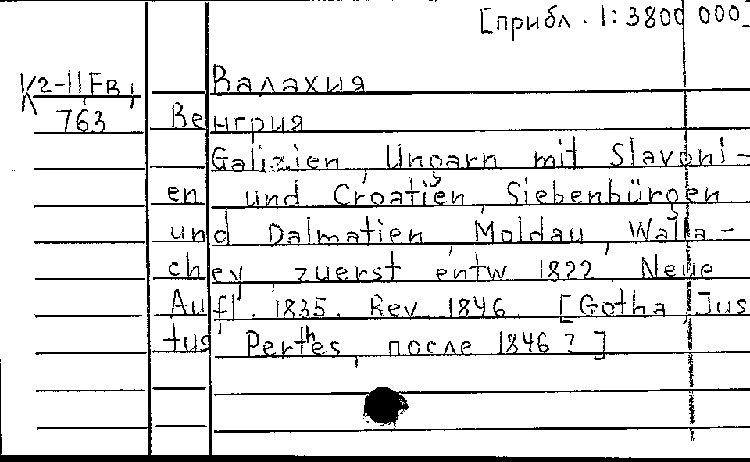 [прибл. 1:3800 000]
Валахия
K2-II Fв, Венгрия
763
Galizien, Ungarn mit Slavoni-
en und Croatien, Siebenbürgen
und Dalmatien, Moldau, Walla-
chey zuerst entw 1822 Neue
Aufl. 1835. Rev 1846 [Gotha, Jus
tus Perthes, после 1846?]